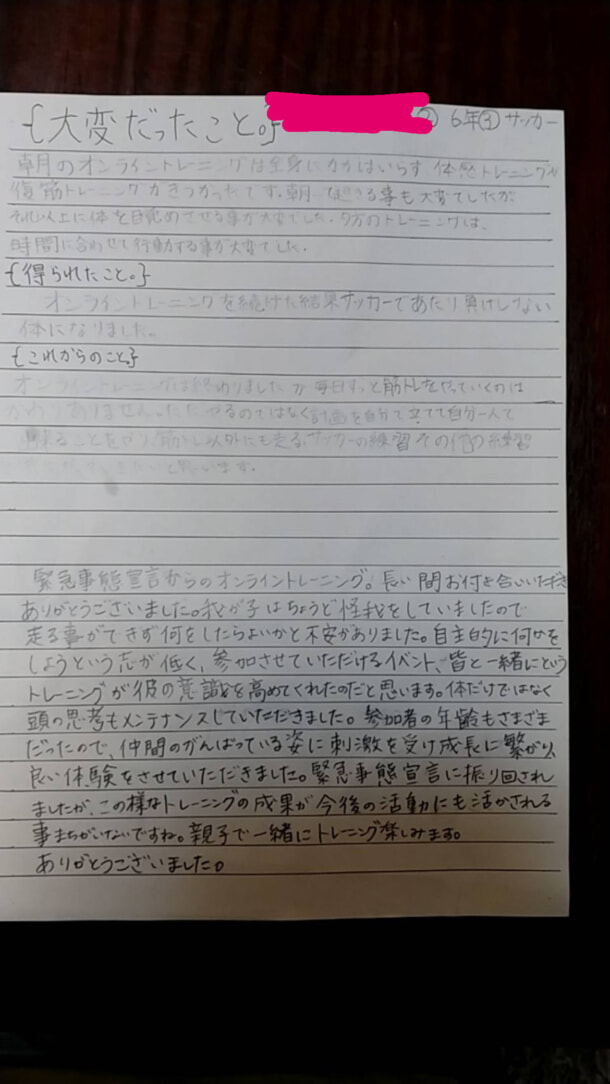 {大変だったこと。} 6年 サッカー
朝のオンライントレーニングは全身に力がはいらず体感トレーニングや
復筋トレーニングがきつかったです。朝 起きる事も大変でしたが
それ以上に体を目覚めさせる事が大変でした。夕方のトレーニングは、
時間に合わせて行動する事が大変でした。
{得られたこと。}
オンライントレーニングを続けた結果サッカーであたり負けしない
体になりました。
{これからのこと。}
オンライントレーニングは終わりましたが毎日ずっと筋トレをやっていくのは
かわりありません。ただやるのではなく計画を自分で立てて自分一人で
出来ることをやり、筋トレ以外にも走る、サッカーの練習その他の練習
と思います。
緊急事態宣言からのオンライントレーニング。長い間お付き合いいただき
ありがとうございました。我が子はちょうど怪我をしていましたので
走る事ができず何をしたらよいかと不安がありました。自主的に何かを
しようという志が低く、参加させていただけるイベント、皆と一緒にという
トレーニングが彼の意識を高めてくれたのだと思います。体だけではなく
頭の思考もメンテナンスしていただきました。参加者の年齢もさまざま
だったので、仲間のがんばっている姿に刺激を受け成長に繋がり、
良い体験をさせていただきました。緊急事態宣言に振り回され
ましたが、この様なトレーニングの成果が今後の活動にも活かされる
事まちがいないですね。親子で一緒にトレーニング楽しみます。
ありがとうございました。